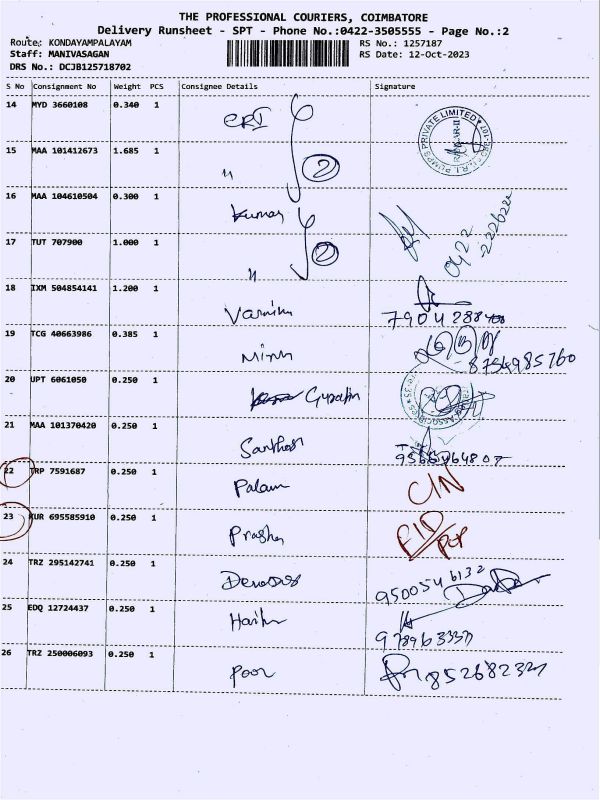 THE PROFESSIONAL COURIERS, COIMBATORE
Delivery Runsheet - SPT - Phone No.:0422-3505555 - Page No.:2
Route: KONDAYAMPALAYAM RS No.: 1257187
Staff: MANIVASAGAN RS Date: 12-Oct-2023
DRS No.: DCJB125718702
S No Consignment No Weight PCS Consignee Details Signature
14 MYD 3660108 0.340 1 CRI
15 MAA 101412673 1.685 1 " 2
16 MAA 104610504 0.300 1 Kumar
17 TUT 707900 1.000 1 " 2
18 IXM 504854141 1.200 1
19 TCG 40663986 0.385 1 8754985760
20 UPT 6061050 0.250 1
21 MAA 101370420 0.250 1 Santhosh
22 TRP 7591687 0.250 1 Palam C/N
23 KUR 695585910 0.250 1
24 TRZ 295142741 0.250 1 9500546132
25 EDQ 12724437 0.250 1
26 TRZ 250006093 0.250 1 Poor